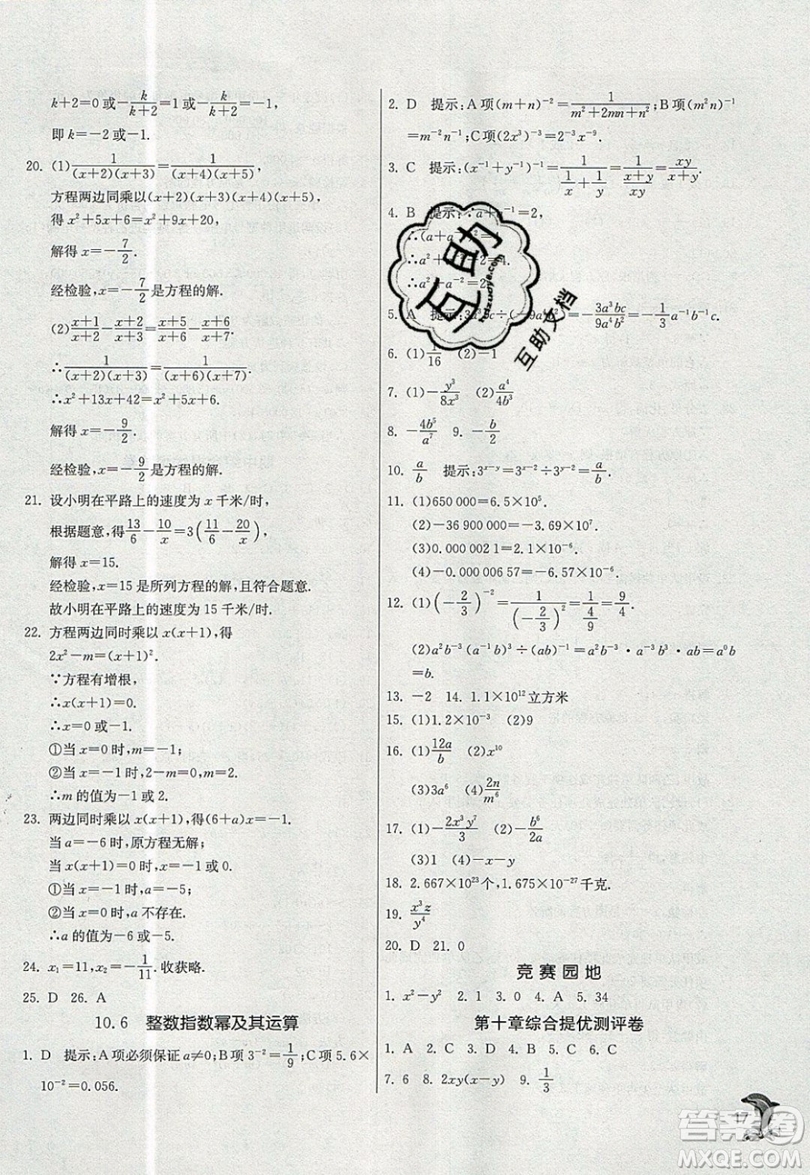 k+2=0或-k/(k+2)=1或-k/(k+2)=-1,
即k=-2或-1.
20. (1)1/((x+2)(x+3))=1/((x+4)(x+5)),
方程两边同乘以(x+2)(x+3)(x+4)(x+5),
得x²+5x+6=x²+9x+20,
解得x=-7/2.
经检验,x=-7/2是方程的解.
(2)(x+1)/(x+2)-(x+2)/(x+3)=(x+5)/(x+6)-(x+6)/(x+7).
∴1/((x+2)(x+3))=1/((x+6)(x+7)).
∴x²+13x+42=x²+5x+6.
解得x=-9/2.
经检验,x=-9/2是方程的解.
21. 设小明在平路上的速度为x千米/时,
根据题意,得13/6-10/x=3(11/6-20/x),
解得x=15.
经检验,x=15是所列方程的解,且符合题意.
故小明在平路上的速度为15千米/时.
22. 方程两边同时乘以x(x+1),得
2x²-m=(x+1)².
∵方程有增根,
∴x(x+1)=0.
∴x=0或x=-1.
①当x=0时,m=-1;
②当x=0时,2-m=0,m=2.
∴m的值为-1或2.
23. 两边同时乘以x(x+1),得(6+a)x=-1.
当a=-6时,原方程无解;
当a≠-6时,x=-1或0.
①当x=-1时,a=-5;
②当x=0时,a不存在.
∴a的值为-6或-5.
24. x₁=11,x₂=-1/11.收获略.
25. D 26. A
10.6 整数指数幂及其运算
1. D 提示:A项必须保证a≠0;B项3⁻²=1/9;C项5.6×
10⁻²=0.056.
2. D 提示:A项(m+n)⁻²=1/(m²+2mn+n²);B项(m²n)⁻¹
=m⁻²n⁻¹;C项(2x³)⁻³=2⁻³x⁻⁹.
3. C 提示:(x⁻¹+y⁻¹)⁻¹=1/(1/x+1/y)=1/((x+y)/xy)=xy/(x+y).
4. B 提示:∵a+a⁻¹=2,
∴(a+a⁻¹)²=
∴a²+a⁻²+2=4
∴a²+a⁻²=2.
5. A 提示:3a³bc÷(-9a⁴b²)=-3a³bc/9a⁴b²=-1/3a⁻¹b⁻¹c.
6. (1)1/16 (2)-1
7. (1)-y³/8x³ (2)a⁴/4b³
8. -4b⁵/a⁷ 9. -b/2
10. a/b 提示:3ˣ⁻ʸ=3ˣ⁻²÷3ʸ⁻²=a/b.
11. (1)650 000=6.5×10⁵.
(2)-36 900 000=-3.69×10⁷.
(3)0.000 002 1=2.1×10⁻⁶.
(4)-0.000 006 57=-6.57×10⁻⁶.
12. (1)(-2/3)⁻²=1/(-2/3)²=1/(4/9)=9/4.
(2)a²b⁻³(a⁻¹b²)²=a²b⁻³·a⁻²b²·b²=a⁰b=
b.
13. -2 14. 1.1×10¹²立方米
15. (1)1.2×10⁻³ (2)9
16. (1)12a/b (2)√10
(3)3a⁶ (4)2n/m⁶
17. (1)-2x³y⁷/3 (2)-b⁶/2a
(3)1 (4)-x-y
18. 2.667×10²³个,1.675×10⁻²⁷千克.
19. x³z/y⁴
20. D 21. 0
竞赛园地
1. x²-y² 2. A 3. C 4. A 5. 34
第十章综合提优测评卷
1. A 2. C 3. D 4. B 5. C 6. C
7. 6 8. 2xy(x-y) 9. 1/3
17
互助
huzuoye.com
互助文档
答案圈
MXQE.COM